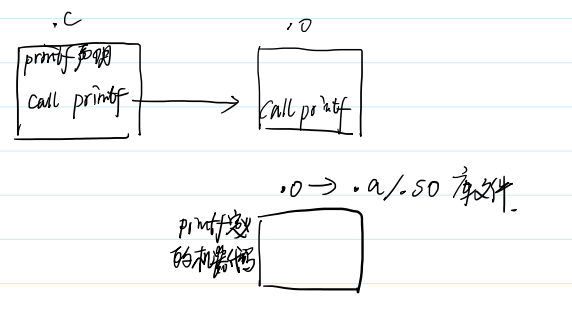 .C
.o
printf声明
call printf
call printf
.o → .a/.so 库文件.
printf定义
的机器代码